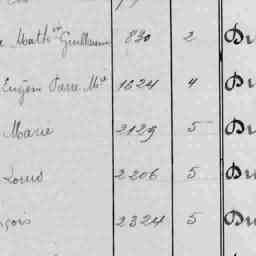 Math Guillaume 830 2 Du
Eugène Pierre Mie 1624 4 Du
Marie 2129 5 Du
Louis 2206 5 Du
nçois 2324 5 Du